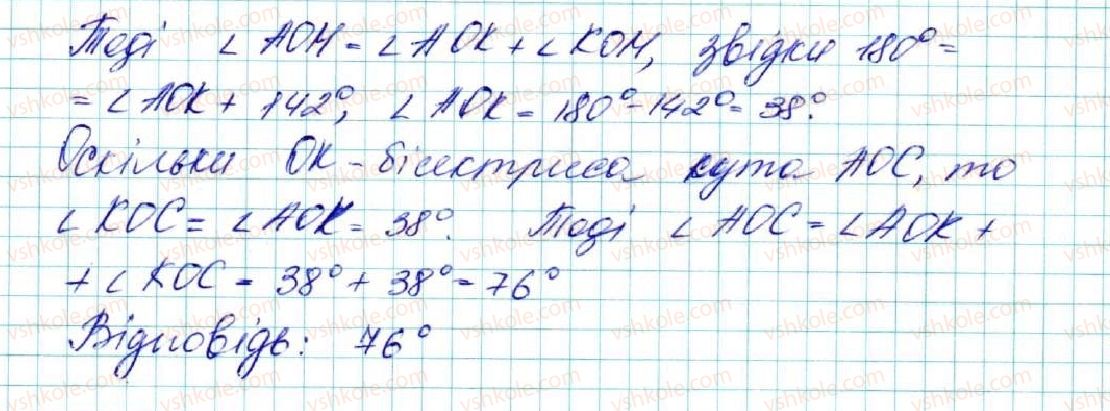 Тоді ∠AOM = ∠AOK + ∠KOM, звідки 180° =
= ∠AOK + 142°, ∠AOK = 180° - 142° = 38°.
Оскільки OK - бісектриса кута AOC, то
∠KOC = ∠AOK = 38°. Тоді ∠AOC = ∠AOK +
+ ∠KOC = 38° + 38° = 76°
Відповідь: 76°